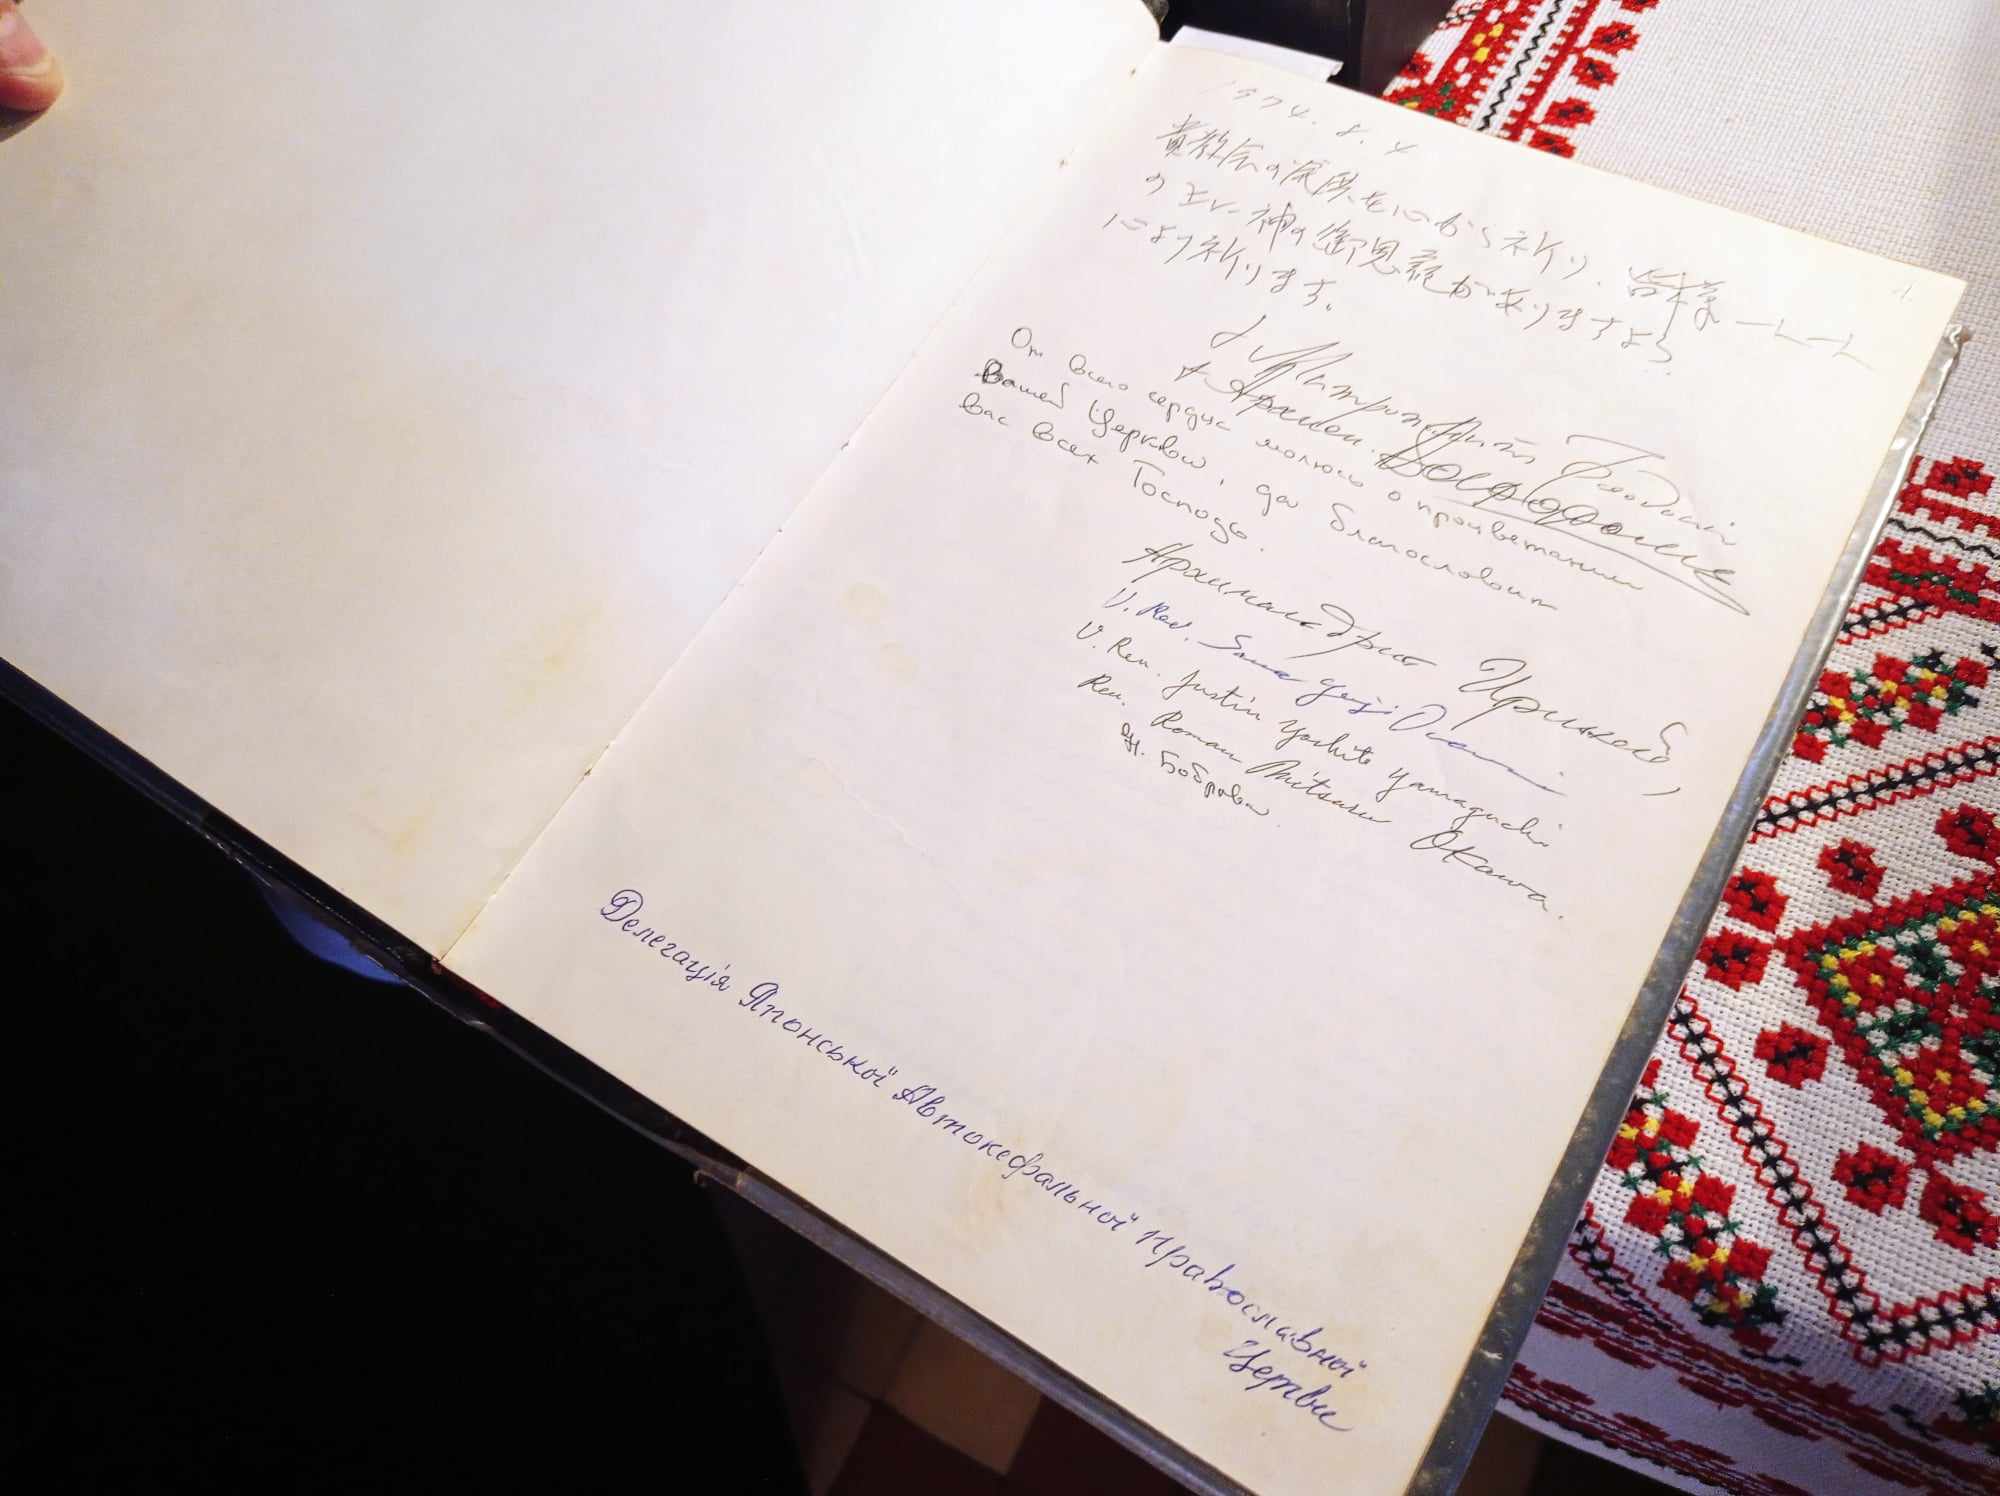 1974. 8. 4
貴教会の復興を心から祈り、皆様一人一人
の上に神の御恩寵がありますよう
に祈ります。
† Митрополит Феодосий
† Архиеп.
От всего сердца молюсь о процветании
Вашей Церкви, да благословит
вас всех Господь.
Архимандрит Ириней
V. Rev.
V. Rev. Justin Yoshite Yamaguchi
Rev. Roman Mitsuru Okawa.
Н. Боброва
Делегація Японської Автокефальної Православної
Церкви